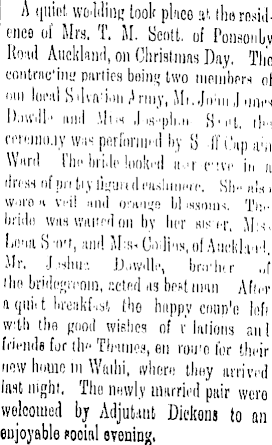 A quiet wedding took place at the resid-
ence of Mrs. T. M. Scott. of Ponsonby
Road Auckland, on Christmas Day. The
contracting parties being two members of
our local Salvation Army, Mr. John James
Dowdle and Miss Josephine Scott, the
ceremony was performed by Staff Captain
Ward The bride looked in a
dress of pretty figured cashmere. She also
wore a veil and orange blossoms. The
bride was waited on by her sister, Miss
Lena Scott, and Miss Collins, of Auckland,
Mr. Joshua Dowdle, brother of
the bridegroom, acted as best man After
a quiet breakfast the happy couple left
with the good wishes of relations and
friends for the Thames, en route for their
new home in Waihi, where they arrived
last night. The newly married pair were
welcomed by Adjutant Dickens to an
enjoyable social evening.